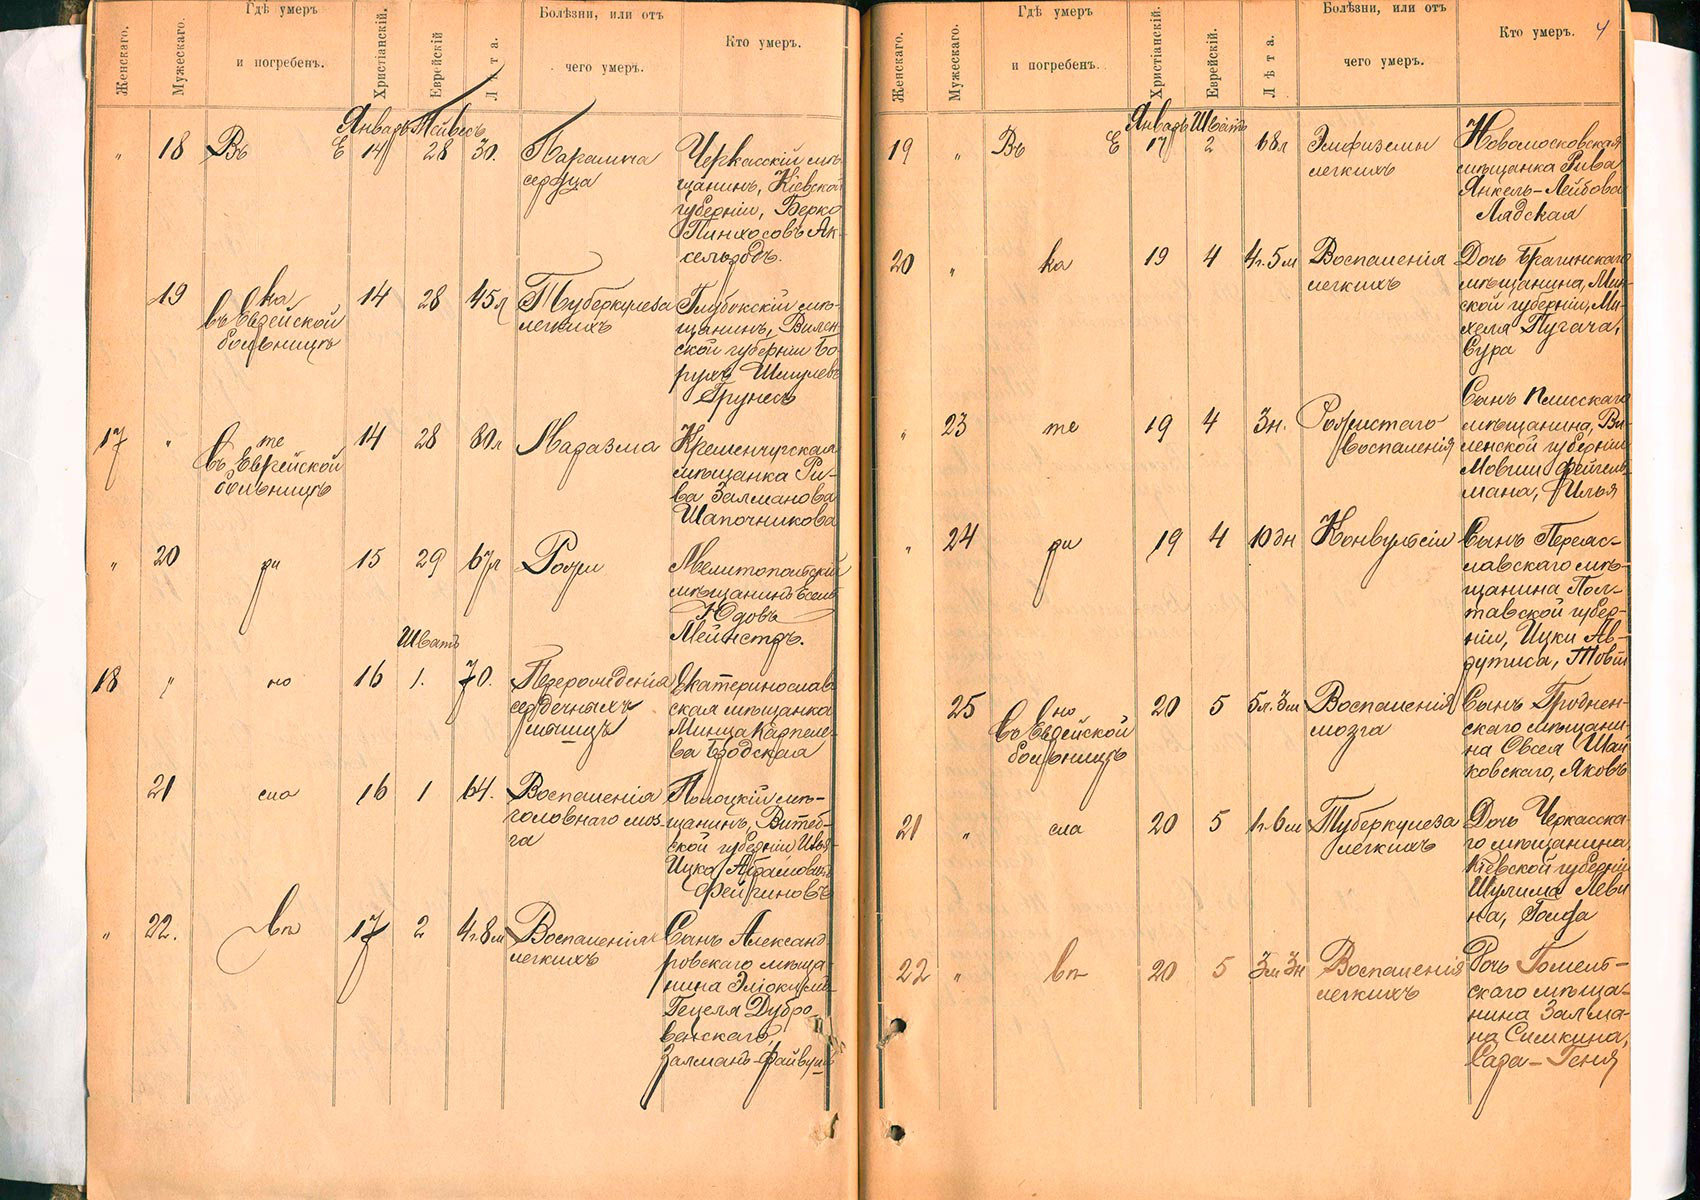 Женскаго.
Мужескаго.
Гдѣ умеръ
и погребенъ.
Христіанскій.
Еврейскій
Лѣта.
Болѣзни, или отъ
чего умеръ.
Кто умеръ.
Январь Тейвесъ
„ 18 Въ Е 14 28 30. Паралича
сердца
Черкасскій мѣ-
щанинъ, Кіевской
губерніи, Берко
Пинхосовъ Ак-
сельродъ.
19 ка 14 28 45 л Туберкулеза
въ Еврейской
больницѣ
легкихъ
Глубокскій мѣ-
щанинъ, Вилен-
ской губерніи Бо-
рухъ Шмулевъ
Грунесъ
17 „ те 14 28 80 л Маразма
въ Еврейской
больницѣ
Кременчугская
мѣщанка Ри-
ва Залманова
Шапочникова
„ 20 ри 15 29 67 л Рожи
Мелитопольскій
мѣщанинъ
Юдовъ
Мейнстръ.
Шватъ
18 „ но 16 1. 70. Перерожденія
сердечныхъ
мышцъ
Екатеринослав
ская мѣщанка
Минца
ва Бродская
21 сла 16 1 64. Воспаленія
головнаго моз-
га
Полоцкій мѣ-
щанинъ, Витеб-
ской губерніи
Ицка Абрамовичъ
Фейгиновъ
„ 22. вп 17 2 4 г. 8 м Воспаленія
легкихъ
Сынъ Александ
ровскаго мѣща-
нина
Гецеля Дубро-
венскаго,
Залманъ-Файвушъ
4
Женскаго.
Мужескаго.
Гдѣ умеръ
и погребенъ.
Христіанскій.
Еврейскій.
Лѣта.
Болѣзни, или отъ
чего умеръ.
Кто умеръ.
Январь Шватъ
19 „ Въ Е 17 2 68 л Эмфиземы
легкихъ
Новомосковская
мѣщанка Рива
Янкель-Лейбова
Лядская
20 „ ка 19 4 4 г. 5 м Воспаленія
легкихъ
Дочь Брагинскаго
мѣщанина, Мин-
ской губерніи, Ми-
хеля Пугача,
Сура
„ 23 те 19 4 3 н. Рожистаго
воспаленія
Сынъ Плисскаго
мѣщанина, Ви-
ленской губерніи
Мовши Фейгель-
мана, Илья
„ 24 ри 19 4 10 дн Конвульсіи
Сынъ Переяс-
лавскаго мѣ-
щанина Пол-
тавской губер-
ніи, Ицки Ав-
рутиса,
25 но 20 5 5 л. 3 м Воспаленія
въ Еврейской
больницѣ
мозга
Сынъ Гроднен-
скаго мѣщани-
на Овсея Шай
ковскаго, Яковъ
21 „ сла 20 5 1 г. 6 м Туберкулеза
легкихъ
Дочь Черкасска-
го мѣщанина,
Кіевской губерніи
Шулима Леви
на, Голда
22 „ вп 20 5 3 м 3 н Воспаленія
легкихъ
Дочь Гомель-
скаго мѣща-
нина Залма-
на Симкина,
Сара-Геня